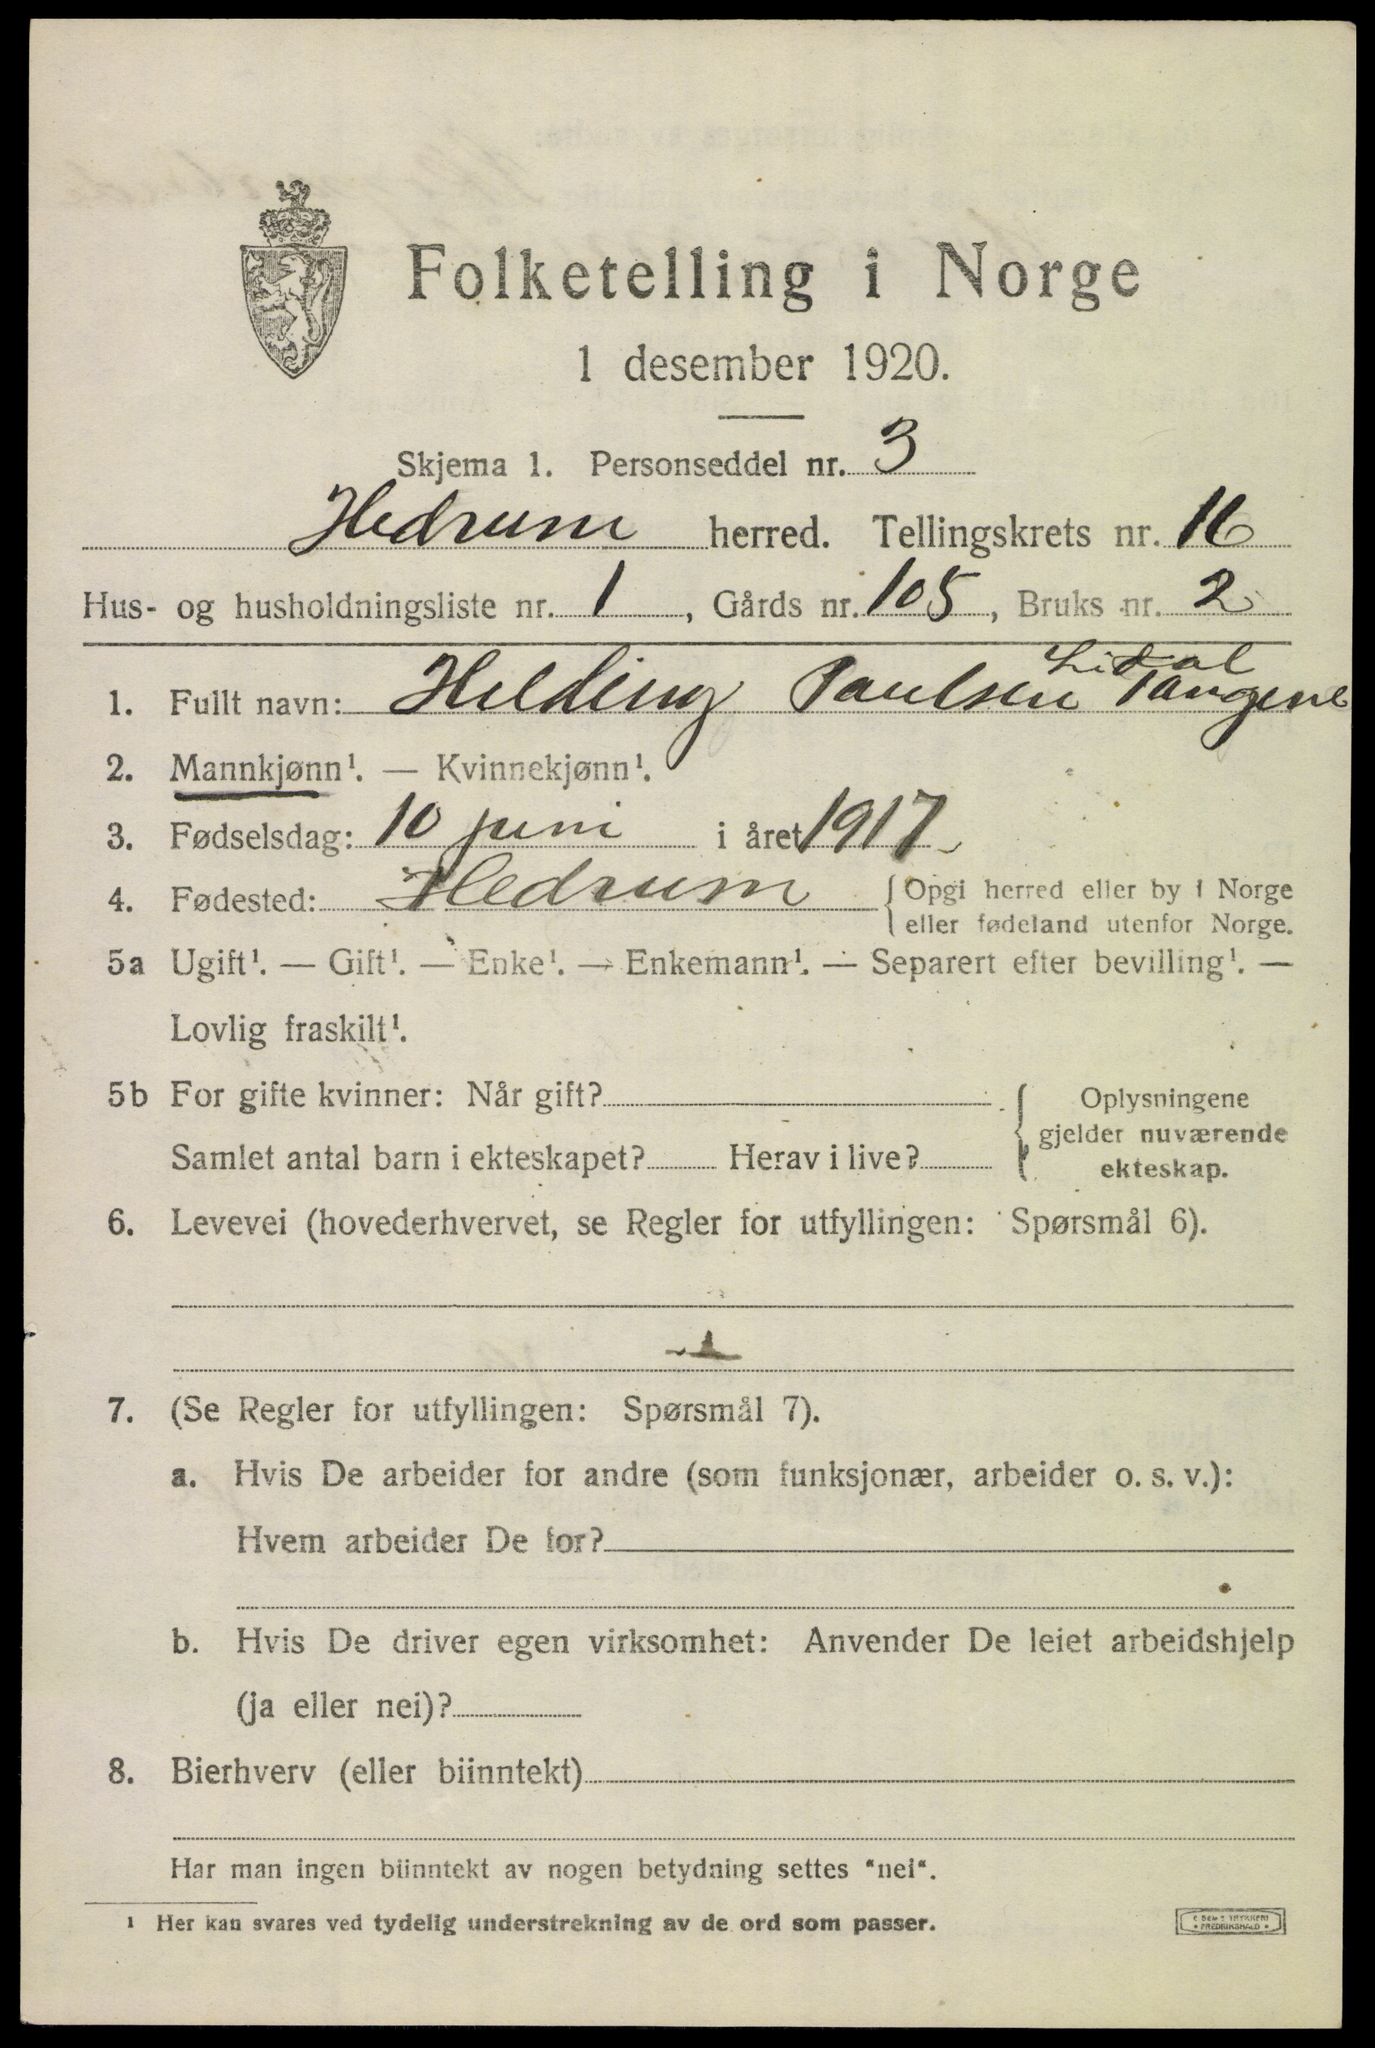 Folketelling i Norge
1 desember 1920.
Skjema 1. Personseddel nr. 3
Hedrum herred. Tellingskrets nr. 16
Hus- og husholdningsliste nr. 1, Gårds nr. 105, Bruks nr. 2
Lidal
1. Fullt navn: Helding Paulsen Tangene
2. Mannkjønn¹. — Kvinnekjønn¹.
3. Fødselsdag: 10 juni i året 1917
4. Fødested: Hedrum { Opgi herred eller by i Norge
eller fødeland utenfor Norge.
5a Ugift¹. — Gift¹. — Enke¹. — Enkemann¹. — Separert efter bevilling¹. —
Lovlig fraskilt¹.
5b For gifte kvinner: Når gift?
Samlet antal barn i ekteskapet? Herav i live?
Oplysningene
gjelder nuværende
ekteskap.
6. Levevei (hovederhvervet, se Regler for utfyllingen: Spørsmål 6).
7. (Se Regler for utfyllingen: Spørsmål 7).
a. Hvis De arbeider for andre (som funksjonær, arbeider o. s. v.):
Hvem arbeider De for?
b. Hvis De driver egen virksomhet: Anvender De leiet arbeidshjelp
(ja eller nei)?
8. Bierhverv (eller biinntekt)
Har man ingen biinntekt av nogen betydning settes "nei".
¹ Her kan svares ved tydelig understrekning av de ord som passer.